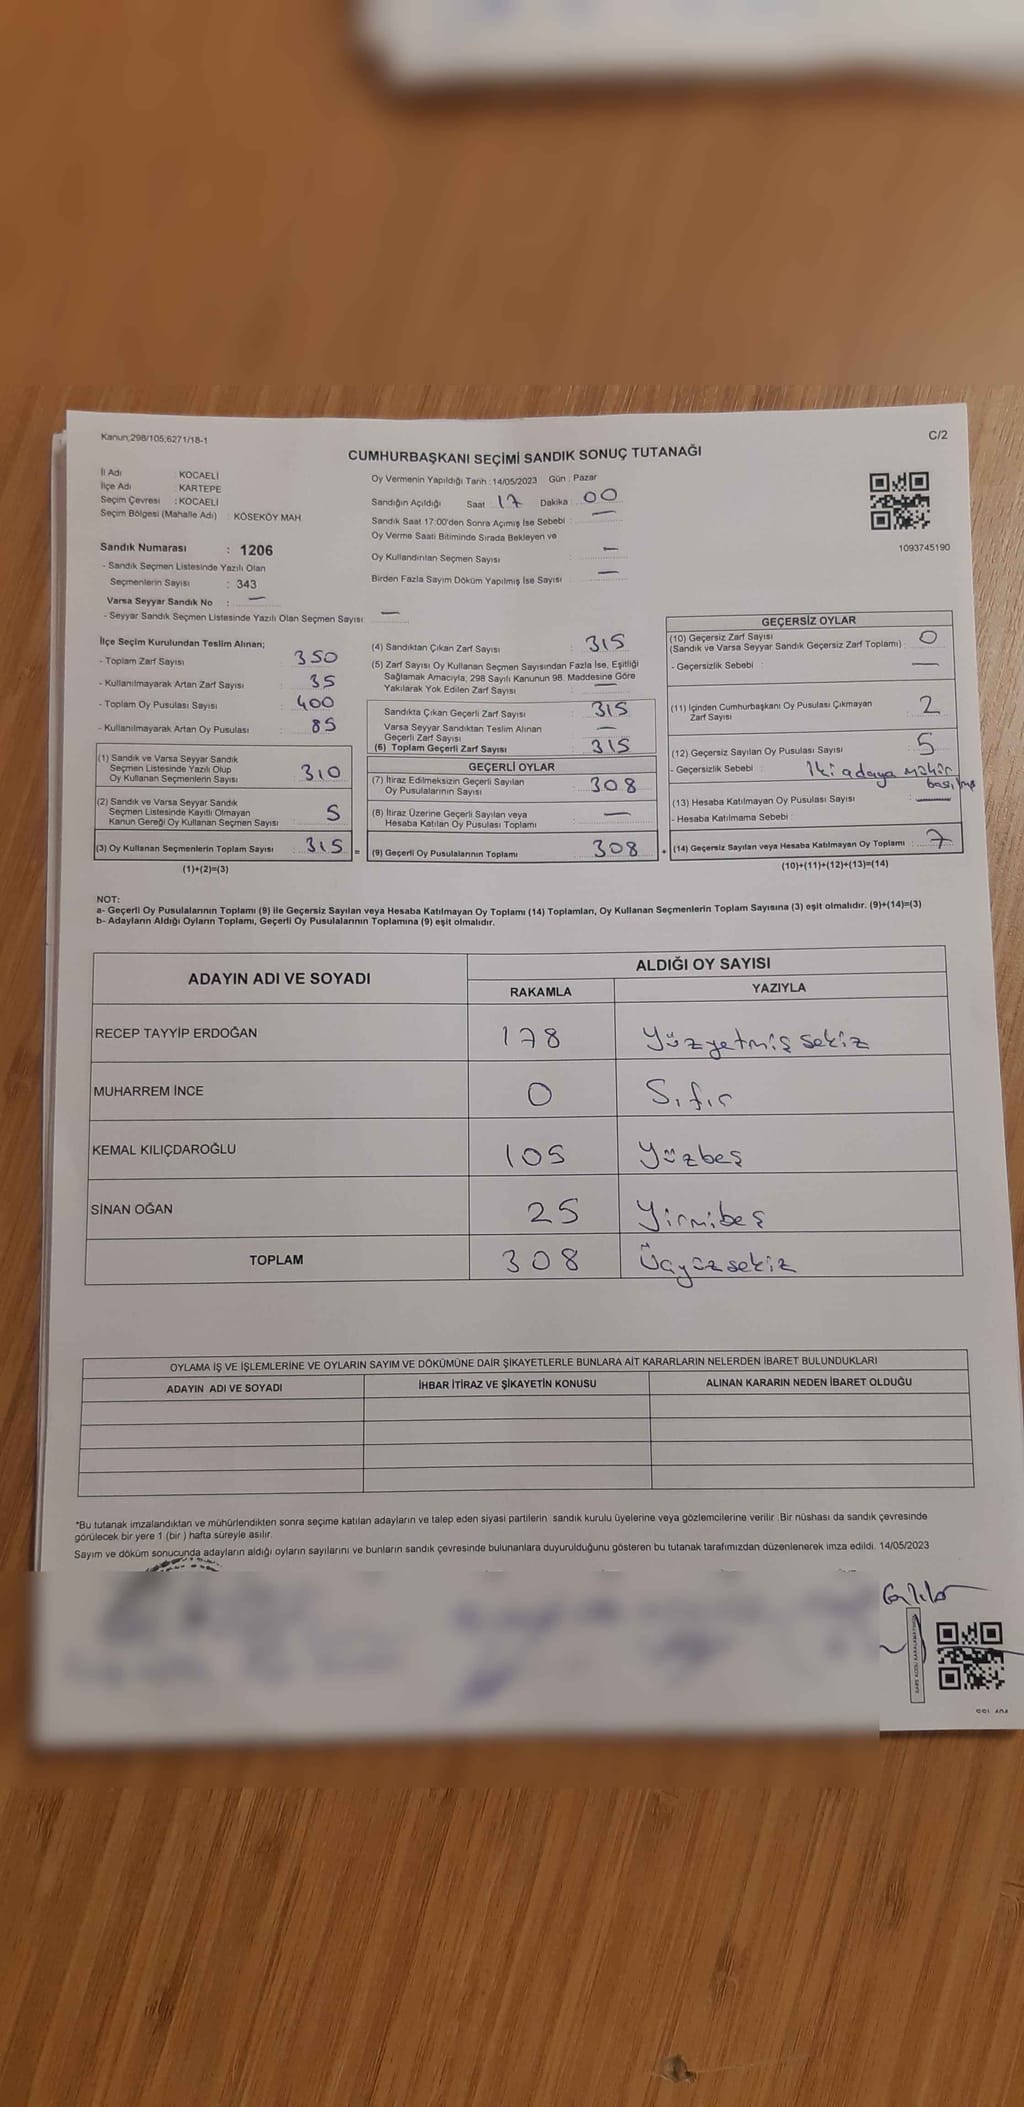 Kanun;298/105;6271/18-1
C/2
CUMHURBAŞKANI SEÇİMİ SANDIK SONUÇ TUTANAĞI
İl Adı : KOCAELİ
İlçe Adı : KARTEPE
Seçim Çevresi : KOCAELİ
Seçim Bölgesi (Mahalle Adı) : KÖSEKÖY MAH.
Sandık Numarası : 1206
- Sandık Seçmen Listesinde Yazılı Olan
Seçmenlerin Sayısı : 343
Varsa Seyyar Sandık No : —
- Seyyar Sandık Seçmen Listesinde Yazılı Olan Seçmen Sayısı : —
Oy Vermenin Yapıldığı Tarih : 14/05/2023 Gün : Pazar
Sandığın Açıldığı Saat 17 Dakika : 00
Sandık Saat 17:00'den Sonra Açımış İse Sebebi : —
Oy Verme Saati Bitiminde Sırada Bekleyen ve
Oy Kullandırılan Seçmen Sayısı : —
Birden Fazla Sayım Döküm Yapılmış İse Sayısı : —
1093745190
İlçe Seçim Kurulundan Teslim Alınan;
- Toplam Zarf Sayısı : 350
- Kullanılmayarak Artan Zarf Sayısı : 35
- Toplam Oy Pusulası Sayısı : 400
- Kullanılmayarak Artan Oy Pusulası : 85
(1) Sandık ve Varsa Seyyar Sandık
Seçmen Listesinde Yazılı Olup
Oy Kullanan Seçmenlerin Sayısı : 310
(2) Sandık ve Varsa Seyyar Sandık
Seçmen Listesinde Kayıtlı Olmayan
Kanun Gereği Oy Kullanan Seçmen Sayısı : 5
(3) Oy Kullanan Seçmenlerin Toplam Sayısı : 315 =
(1)+(2)=(3)
(4) Sandıktan Çıkan Zarf Sayısı : 315
(5) Zarf Sayısı Oy Kullanan Seçmen Sayısından Fazla İse, Eşitliği
Sağlamak Amacıyla; 298 Sayılı Kanunun 98. Maddesine Göre
Yakılarak Yok Edilen Zarf Sayısı : —
Sandıkta Çıkan Geçerli Zarf Sayısı : 315
Varsa Seyyar Sandıktan Teslim Alınan
Geçerli Zarf Sayısı : —
(6) Toplam Geçerli Zarf Sayısı : 315
GEÇERLİ OYLAR
(7) İtiraz Edilmeksizin Geçerli Sayılan
Oy Pusulalarının Sayısı : 308
(8) İtiraz Üzerine Geçerli Sayılan veya
Hesaba Katılan Oy Pusulası Toplamı : —
(9) Geçerli Oy Pusulalarının Toplamı : 308 +
GEÇERSİZ OYLAR
(10) Geçersiz Zarf Sayısı : 0
(Sandık ve Varsa Seyyar Sandık Geçersiz Zarf Toplamı)
- Geçersizlik Sebebi : —
(11) İçinden Cumhurbaşkanı Oy Pusulası Çıkmayan
Zarf Sayısı : 2
(12) Geçersiz Sayılan Oy Pusulası Sayısı : 5
- Geçersizlik Sebebi : İki adaya mühür
basılmış
(13) Hesaba Katılmayan Oy Pusulası Sayısı : —
- Hesaba Katılmama Sebebi :
(14) Geçersiz Sayılan veya Hesaba Katılmayan Oy Toplamı : 7
(10)+(11)+(12)+(13)=(14)
NOT:
a- Geçerli Oy Pusulalarının Toplamı (9) ile Geçersiz Sayılan veya Hesaba Katılmayan Oy Toplamı (14) Toplamları, Oy Kullanan Seçmenlerin Toplam Sayısına (3) eşit olmalıdır. (9)+(14)=(3)
b- Adayların Aldığı Oyların Toplamı, Geçerli Oy Pusulalarının Toplamına (9) eşit olmalıdır.
ADAYIN ADI VE SOYADI
ALDIĞI OY SAYISI
RAKAMLA YAZIYLA
RECEP TAYYİP ERDOĞAN 178 Yüzyetmiş sekiz
MUHARREM İNCE 0 Sıfır
KEMAL KILIÇDAROĞLU 105 Yüzbeş
SİNAN OĞAN 25 Yirmibeş
TOPLAM 308 Üçyüzsekiz
OYLAMA İŞ VE İŞLEMLERİNE VE OYLARIN SAYIM VE DÖKÜMÜNE DAİR ŞİKAYETLERLE BUNLARA AİT KARARLARIN NELERDEN İBARET BULUNDUKLARI
ADAYIN ADI VE SOYADI İHBAR İTİRAZ VE ŞİKAYETİN KONUSU ALINAN KARARIN NEDEN İBARET OLDUĞU
*Bu tutanak imzalandıktan ve mühürlendikten sonra seçime katılan adayların ve talep eden siyasi partilerin sandık kurulu üyelerine veya gözlemcilerine verilir .Bir nüshası da sandık çevresinde
görülecek bir yere 1 (bir ) hafta süreyle asılır.
Sayım ve döküm sonucunda adayların aldığı oyların sayılarını ve bunların sandık çevresinde bulunanlara duyurulduğunu gösteren bu tutanak tarafımızdan düzenlenerek imza edildi. 14/05/2023